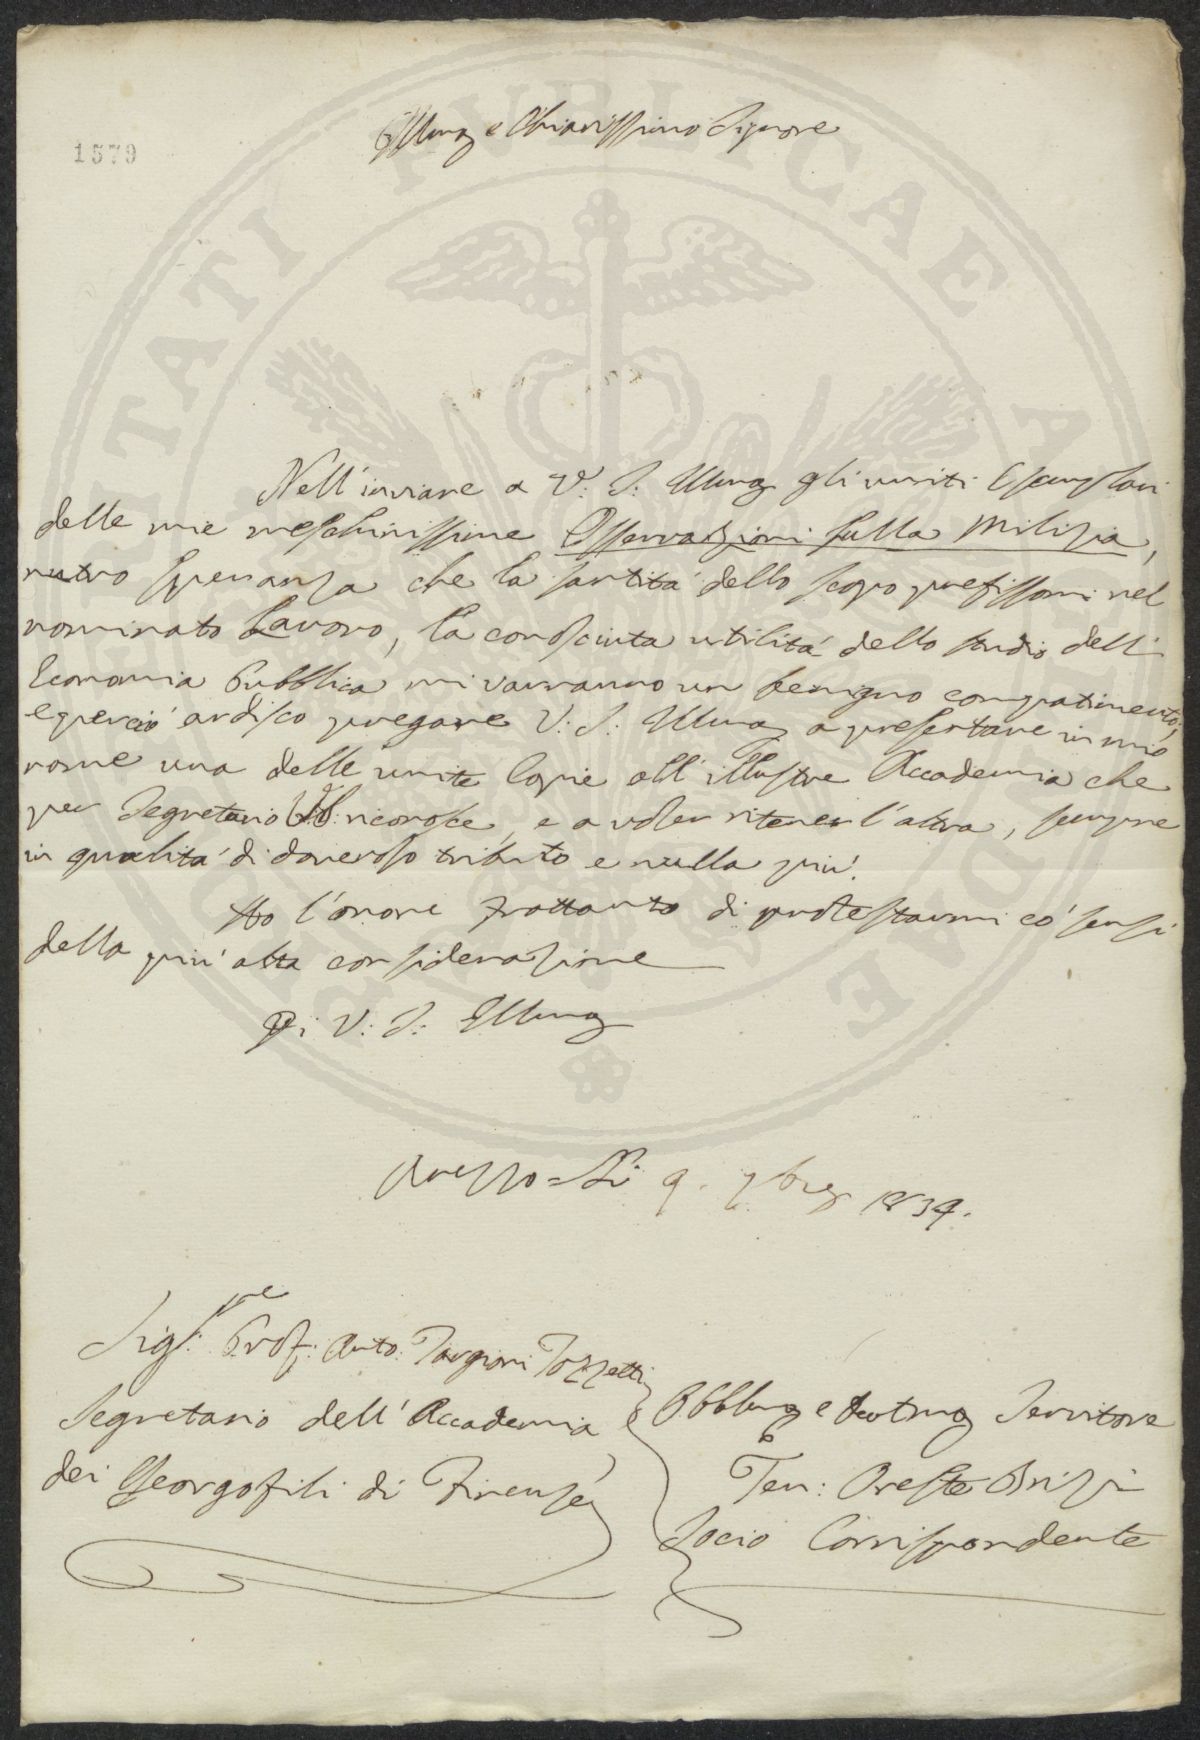 1579
Illmo e Chiarissimo Signore
Nell'inviare a V: S: Illma gli uniti Esemplari
delle mie meschinissime Osservazioni sulla Milizia,
nutro speranza che la santità dello scopo prefissomi nel
nominato Lavoro, la conosciuta utilità dello studio dell'
Economia Pubblica mi varranno un benigno compatimento;
e perciò ardisco pregare V: S: Illma a presentare in mio
nome una delle unite Copie all'illustre Accademia che
per Segretario riconosce, e a voler ritener l'altra, sempre
in qualità di doveroso tributo e nulla più.
Ho l'onore frattanto di protestarmi co' sensi
della più alta considerazione
Di V: S: Illma
Arezzo = Li 9. 7bre 1834.
Sigre Prof: Anto: Targioni Tozzetti
Segretario dell'Accademia
dei Georgofili di Firenze
Obblmo e Devtmo Servitore
Ten: Oreste Brizi
Socio Corrispondente
PROSPERITATI PVBLICAE AVGENDAE